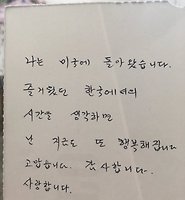 나는 미국에 돌아왔습니다.
즐거웠던 한국에서의
시간을 생각하면
난 지금도 또 행복해집니다
고맙습니다. 감사합니다.
사랑합니다.